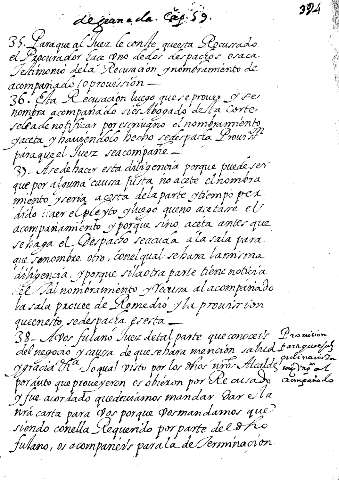 de granada. Cap. 59. 394
35. Para que al Juez le conste, questa Recusado
el Procurador saca uno de dos despachos, o saca
testimonio de la Recusacion, y nombramiento de
acompañado, o provission —
36. Esta Recusacion luego que se provee, y se
nombra acompañado si es Abogado de la Corte
se le a de notificar por escriuano el nombramiento
y aceta, y hauiendolo hecho se despacha Prouiss.on
para que el Juez se acompañe —
37. A se de hacer esta diligencia porque puede ser
que por alguna causa justa no acete el nombra
miento, y seria a costa de la parte, y tiempo per
dido traer el pleyto, y luego que no
acompañamiento, y porque si no aceta, antes que
se haga el Despacho se acuda a la sala para
que se nombre otro, con el qual se hara la misma
diligencia, y porque si la otra parte tiene noticia
del tal nombramiento, y Recusa al acompañado
la sala prouee de Remedio, y la prouission
que en esto, se despacha es esta —
38. A Vos fulano Juez de tal parte que conoceis
del negocio, y causa de que se hara mención salud
y gracia. S.a lo qual visto por los dichos nros. Alcaldes
por auto que proueyeron os obieron por Recusado
y fue acordado que deuiamos mandar dar esta
nra carta para Vos por que vos mandamos que
siendo con ella Requerido por parte del dho
fulano, os acompañeis para la determinacion
Prouision
para que el Juez
recusado
se acompañe con el
acompañado